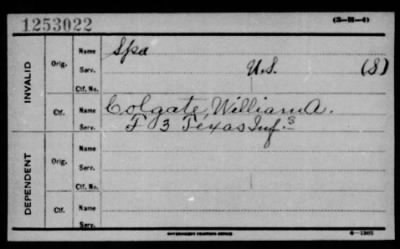 1253022
(3-H-4)
INVALID
Orig.
Name
Spa
Serv.
U.S.
(S)
Ctf. No.
Ctf.
Name
Colgate, William A.
Serv.
F 3 Texas Inf.
DEPENDENT
Orig.
Name
Serv.
Ctf. No.
Ctf.
Name
Serv.
GOVERNMENT PRINTING OFFICE